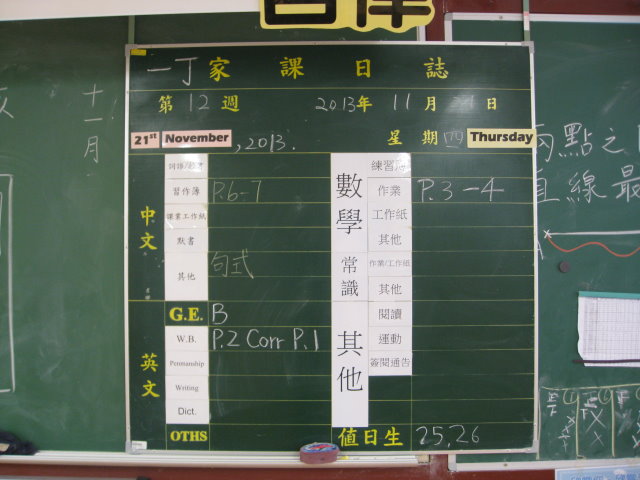 一丁家課日誌
第12週 2013年 11月 21日
21st November, 2013. 星期四 Thursday
中文
習作簿 P.6-7
課業工作紙
默書
其他 句式
英文
G.E. B
W.B. P.2 Corr P.1
Penmanship
Writing
Dict.
OTHS
數學
練習簿
作業 P.3-4
工作紙
其他
常識
作業/工作紙
其他
其他
閱讀
運動
簽閱通告
值日生 25,26
十一月
兩點之
直線最
A